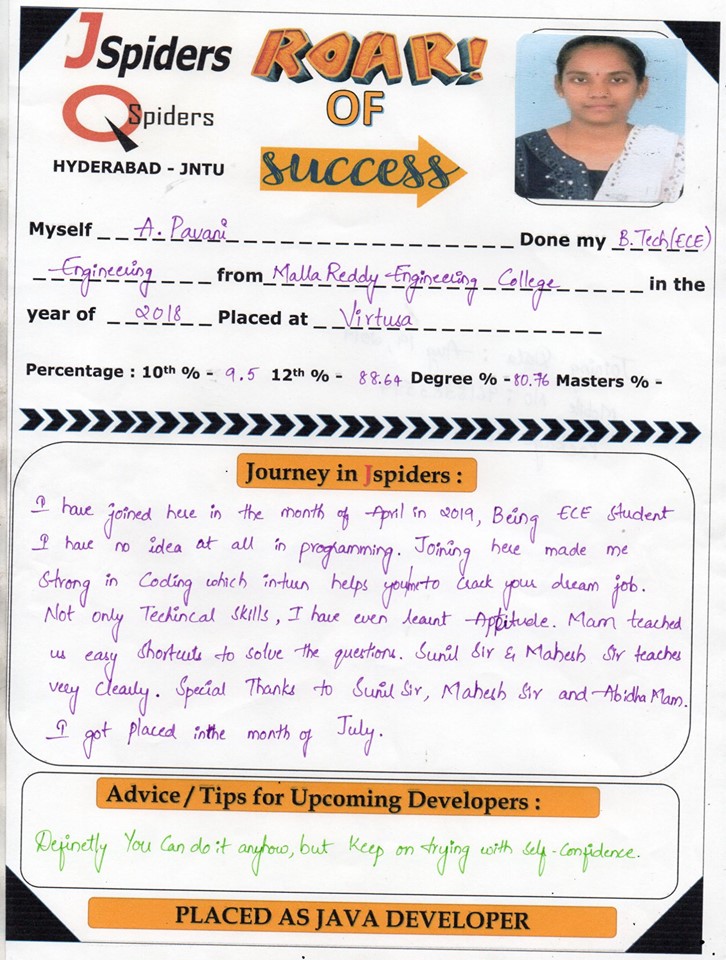 JSpiders
QSpiders
HYDERABAD - JNTU
ROAR!
OF
success
Myself A. Pavani Done my B.Tech(ECE)
Engineering from Malla Reddy Engineering College in the
year of 2018 Placed at Virtusa
Percentage : 10th % - 9.5 12th % - 88.64 Degree % - 80.76 Masters % -
Journey in Jspiders :
I have joined here in the month of April in 2019, Being ECE Student
I have no idea at all in programming. Joining here made me
Strong in Coding which inturn helps to Crack your dream job.
Not only Techincal Skills, I have even learnt Apptitude. Mam teached
us easy Shortcuts to solve the questions. Sunil Sir & Mahesh Sir teaches
very clearly. Special Thanks to Sunil Sir, Mahesh Sir and Abidha Mam.
I got placed inthe month of July.
Advice / Tips for Upcoming Developers :
Definetly You Can do it anyhow, but keep on trying with self-confidence.
PLACED AS JAVA DEVELOPER